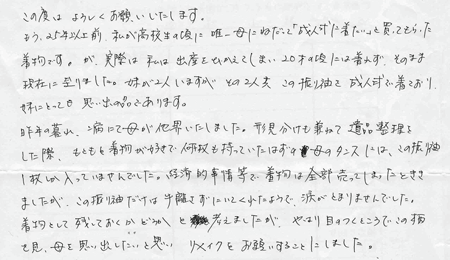 この度は よろしくお願いいたします。
もう、25年以上前、私が高校生の頃に 唯一母にねだって「成人式に着たい」と買ってもらった
着物です。が、実際は 私は 出産を むかえてしまい 20才の頃には着れず、そのまま
現在に至りました。妹が2人いますが その2人共 この振り袖を 成人式で着ており、
妹にとっても 思い出の品であります。
昨年の暮れ、病にて母が他界いたしました。形見分けも兼ねて 遺品整理を
した際、もともと着物が好きで 何枚も持っていたはずの母のタンスには、この振り袖
1枚しか入っていませんでした。経済的事情等で 着物は全部売ってしまったときき
ましたが、この振り袖だけは 手離さずにいてくれたようで、涙がとまりませんでした。
着物として 残しておくか どうか と 考えましたが、やはり目のつくところで この振袖
を見、母を思い出したいと思い リメイクを お願いすることにしました。